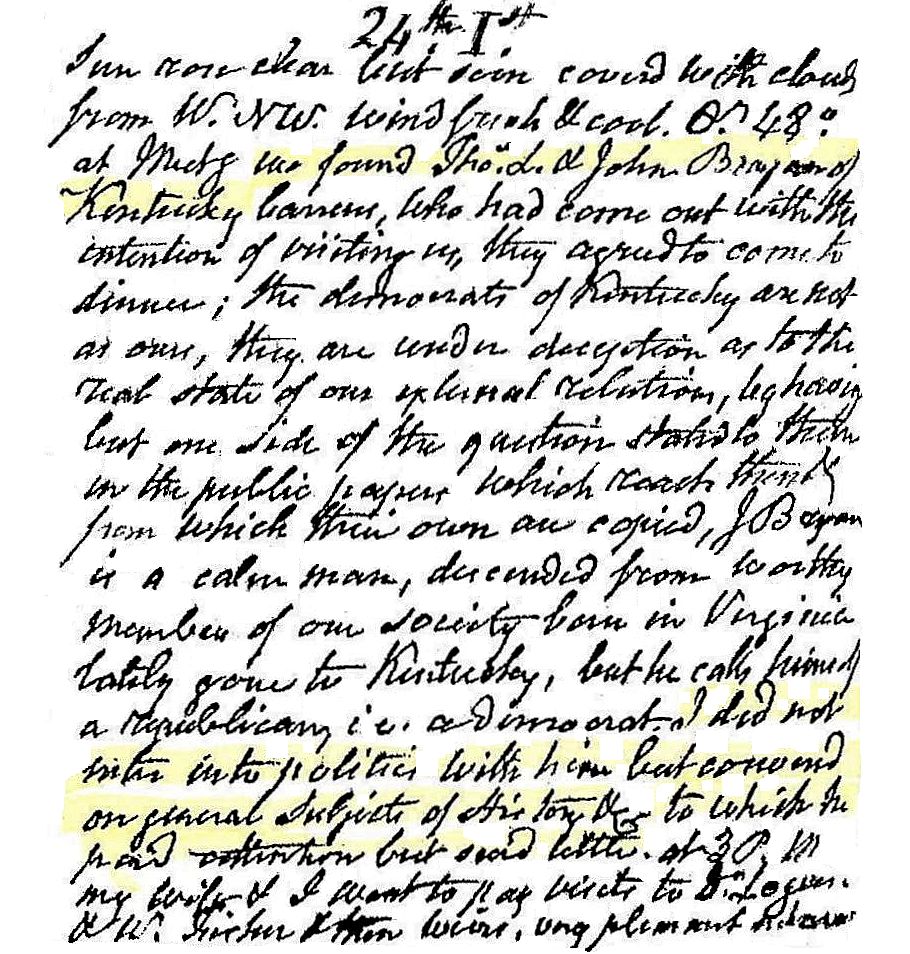 24th 1st
Sun rose clear but soon coverd with clouds
from W. NW. wind fresh & cool. 48°
at Meetg we found Thos. L. & John Brayan of
Kentucky barrens, who had come out with the
intention of visiting us, they agreed to come to
dinner; the democrats of Kentucky are not
as ours, they are under deception as to the
real state of our external relations, by having
but one side of the question stated to them
in the public papers which reach them &
from which their own are copied, J Brayan
is a calm man, descended from worthy
members of our society born in Virginia
lately gone to Kentucky, but he calls himself
a republican, i.e. a Democrat. I did not
enter into politics with him but conversd
on general Subjects of History &c to which he
paid attention but said little. at 3 P. M
my wife & I went to pay visits to Dr. Logan
& W. Fisher & their wives, very pleasant